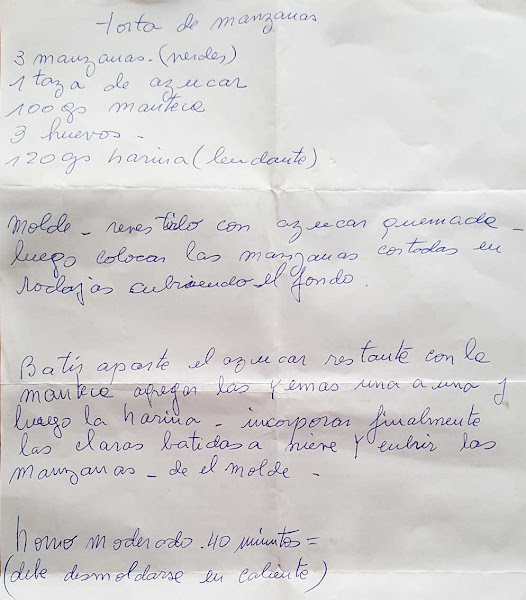 torta de manzanas
3 manzanas. (verdes)
1 taza de azucar
100 gs manteca
3 huevos -
120 gs harina (leudante)
Molde - revestido con azucar quemada -
luego colocar las manzanas cortadas en
rodajas cubriendo el fondo.
Batir aparte el azucar restante con la
manteca agregar las yemas una a una y
luego la harina - incorporar finalmente
las claras batidas a nieve y cubrir las
manzanas - de el molde -
horno moderado. 40 minutos =
(debe desmoldarse en caliente)